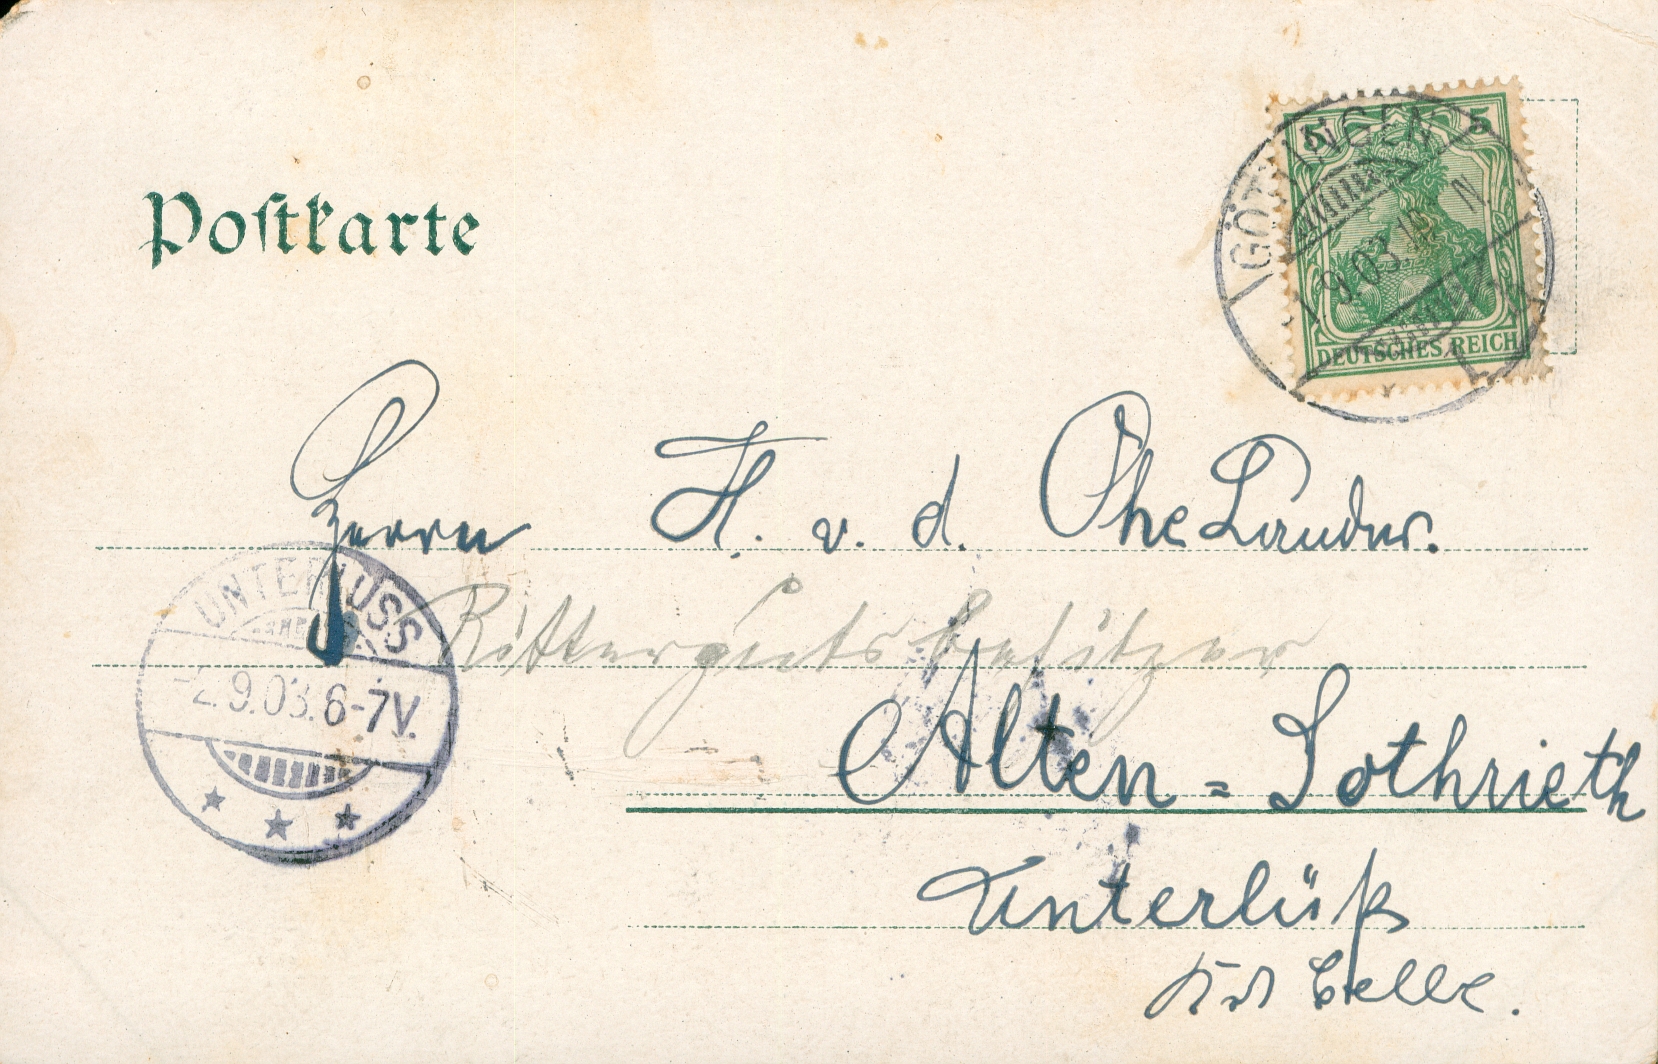 Postkarte
5 5
GÖTTINGEN
9.03.
N
DEUTSCHES REICH
Herrn H. v. d. Ohe
UNTERLÜSS
Rittergutsbesitzer
-2.9.03.6-7V.
Alten = Sothrieth
Unterlüß
Celle.